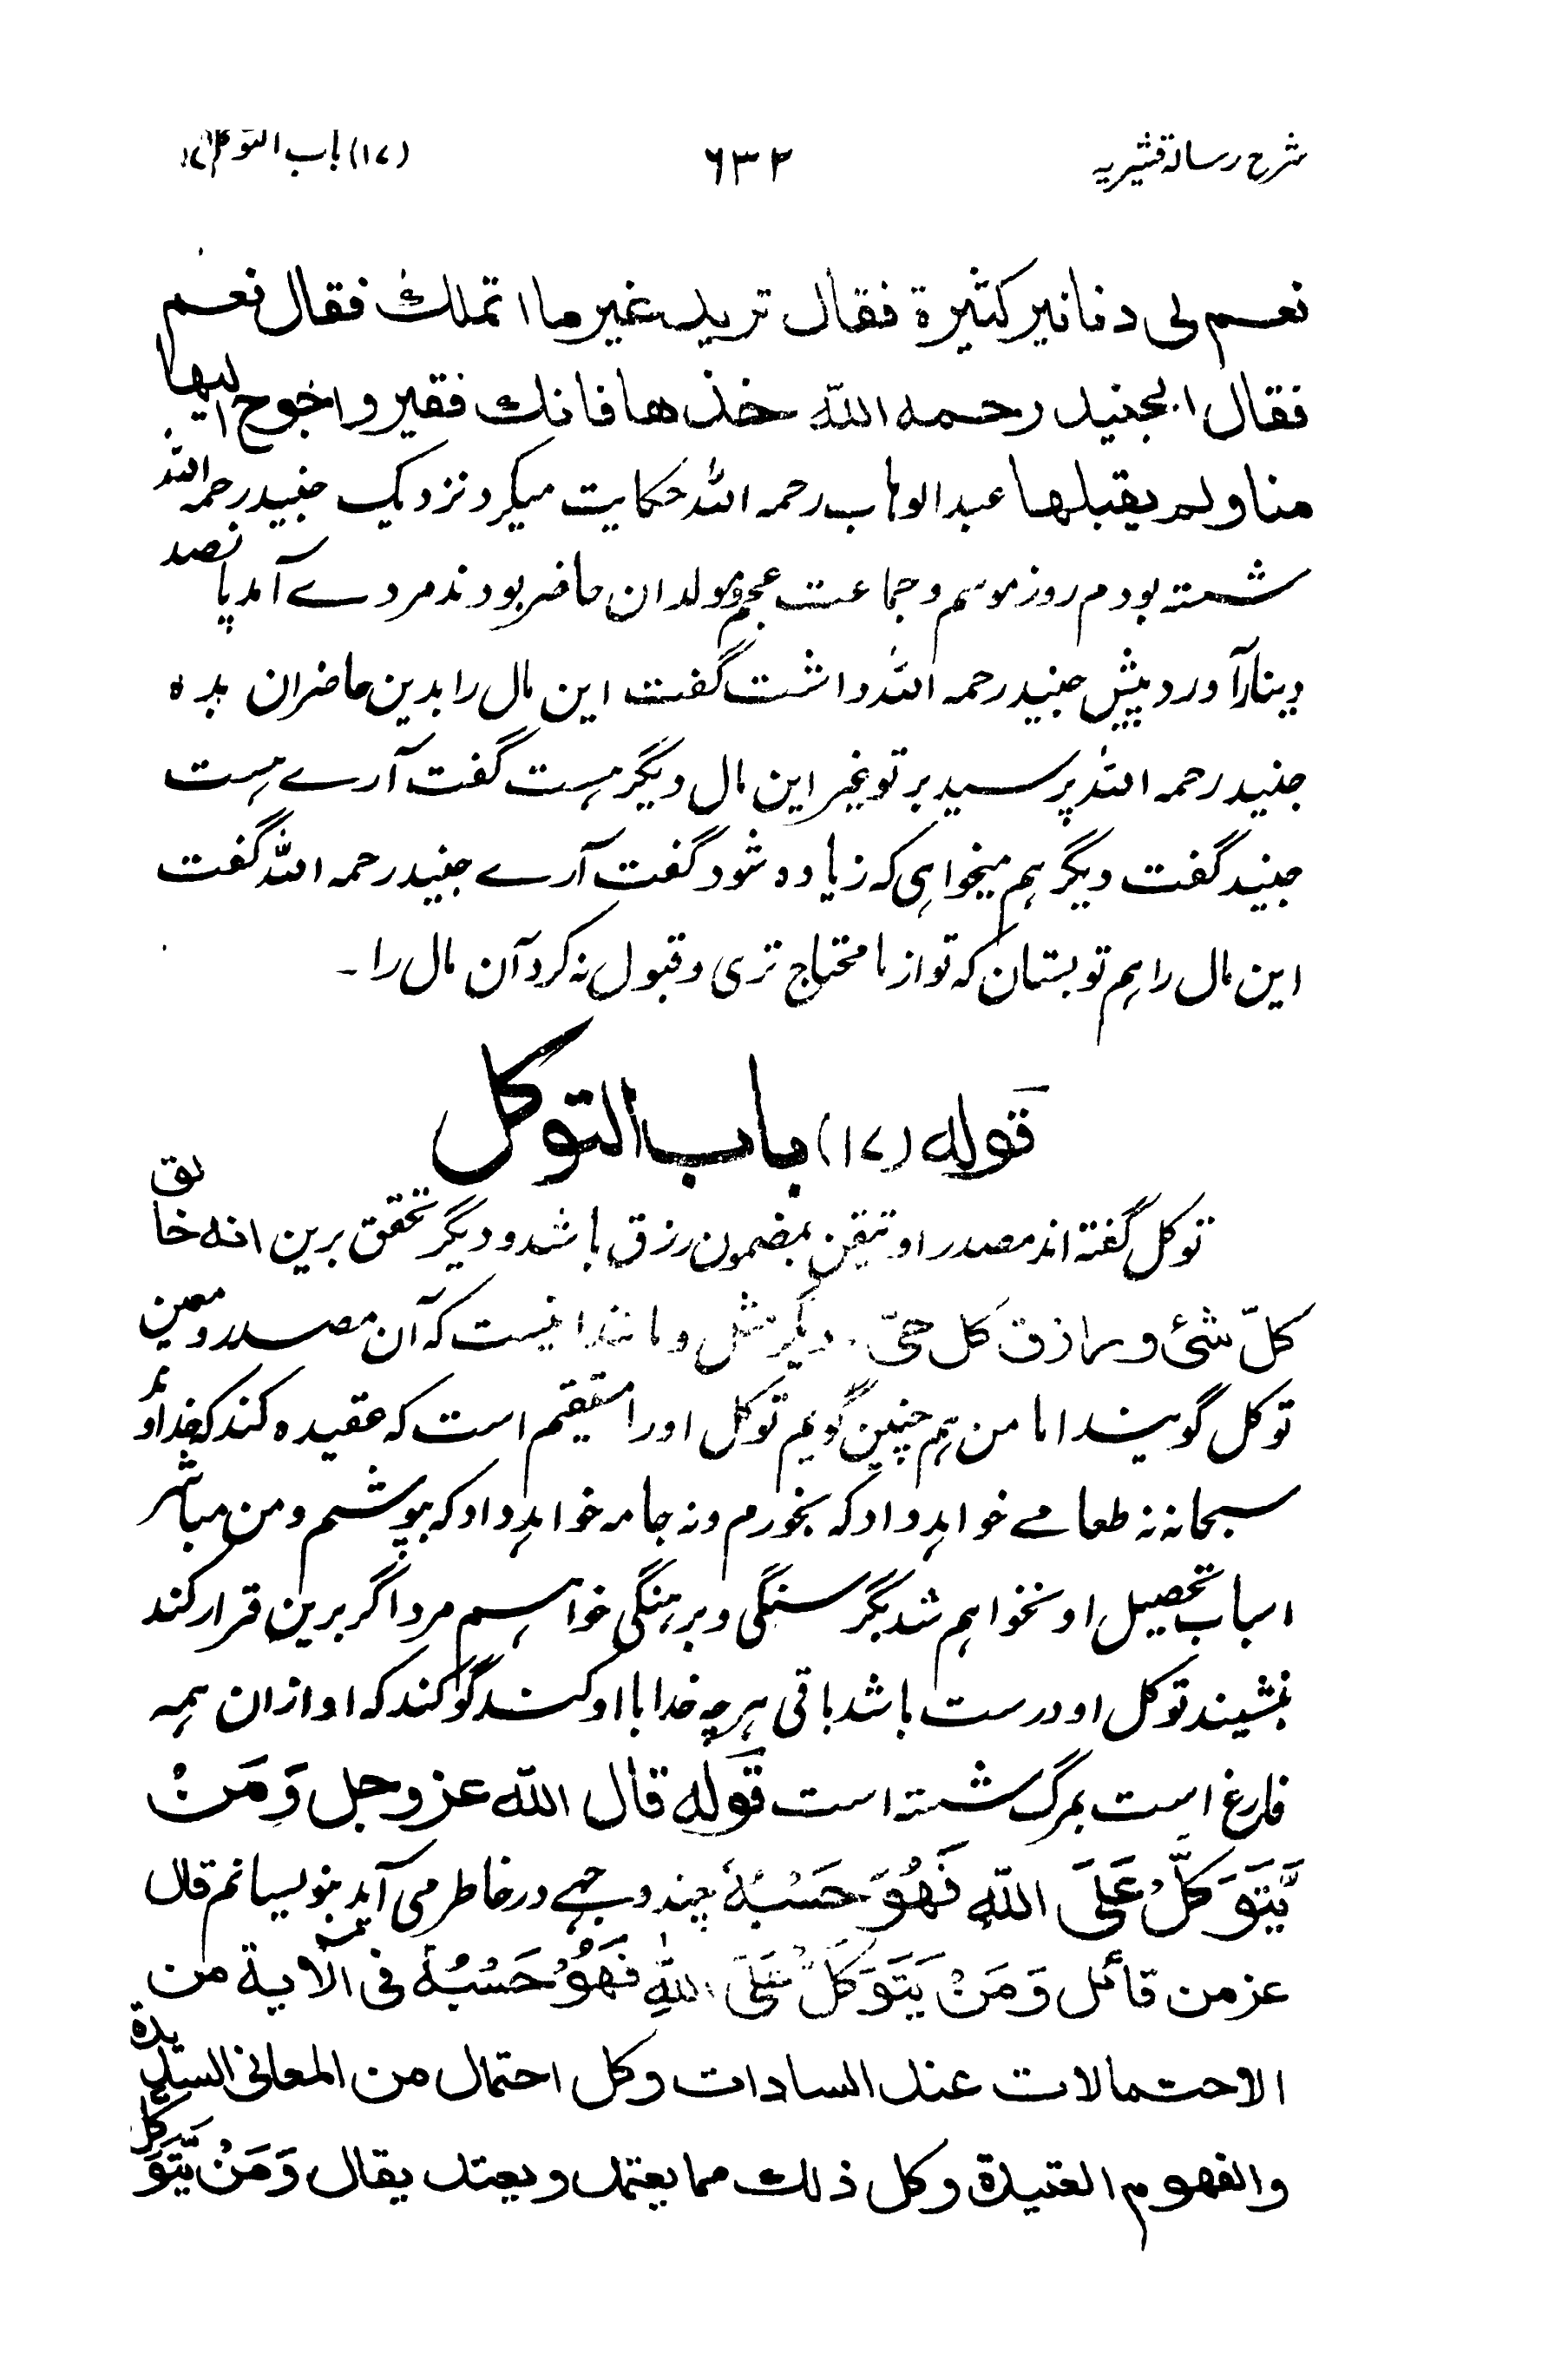 شرح رسالۂ قشیریہ ۶۳۲ (۱۷) باب التوکل
نعم لی دنانیر کثیرة فقال ترید غیر ما اتملك فقال نعم
فقال الجنید رحمه الله خذها فانك فقیر واخوج الیها
منا ولم یقبلها عبد الوہاب رحمہ اللہ حکایت میکرد نزدیک جنید رحمہ اللہ
نشستہ بودم روز موسم وجماعت عجم ومولدان حاضر بودند مردے آمد پانصد
دینار آورد پیش جنید رحمہ اللہ داشت گفت این مال را بدین حاضران بدہ
جنید رحمہ اللہ پرسید بر تو غیر این مال دیگر ہست گفت آرے ہست
جنید گفت دیگر ہم میخواہی کہ زیادہ شود گفت آرے جنید رحمہ اللہ گفت
این مال را ہم تو بستان کہ تو از ما محتاج تری وقبول نہ کرد آن مال را۔
قوله (۱۷) باب التوکل
توکل گفتہ اند مصدر او تیقن بمضمون رزق باشد ودیگر تحقق برین انه خالق
کلّ شئ ورازق کل حیّ. دیگر مثل ومانند انیست کہ آن مصدر ومعین
توکل گویند اما من ہم چنین گویم توکل اورا مستقیم است کہ عقیدہ کند کہ خداوند
سبحانہ نہ طعامے خواہد داد کہ بخورم ونہ جامہ خواہد داد کہ بپوشم ومن مباشر
اسباب تحصیل او نخواہم شد بگرسنگی وبرہنگی خواہم مرد اگر برین قرار کند
بنشیند توکل او درست باشد باقی ہرچہ خدا با او کند گو کند کہ او ازان ہمہ
فارغ است بمرگ نشستہ است قوله قال الله عز وجل وَمَنْ
یَّتَوَکَّلْ عَلَی اللهِ فَهُوَ حَسْبُهٗ چند وجہے در خاطر می آید بنویسانم قال
عز من قائل وَمَنْ یَتَوَکَّلْ عَلَی اللهِ فَهُوَ حَسْبُهٗ فی الآیة من
الاحتمالات عند السادات وکل احتمال من المعانی السدیدة
والفهوم العتیدة وکل ذلك مما یعتمد ویعتد یقال وَمَنْ یَّتَوَکَّلْ